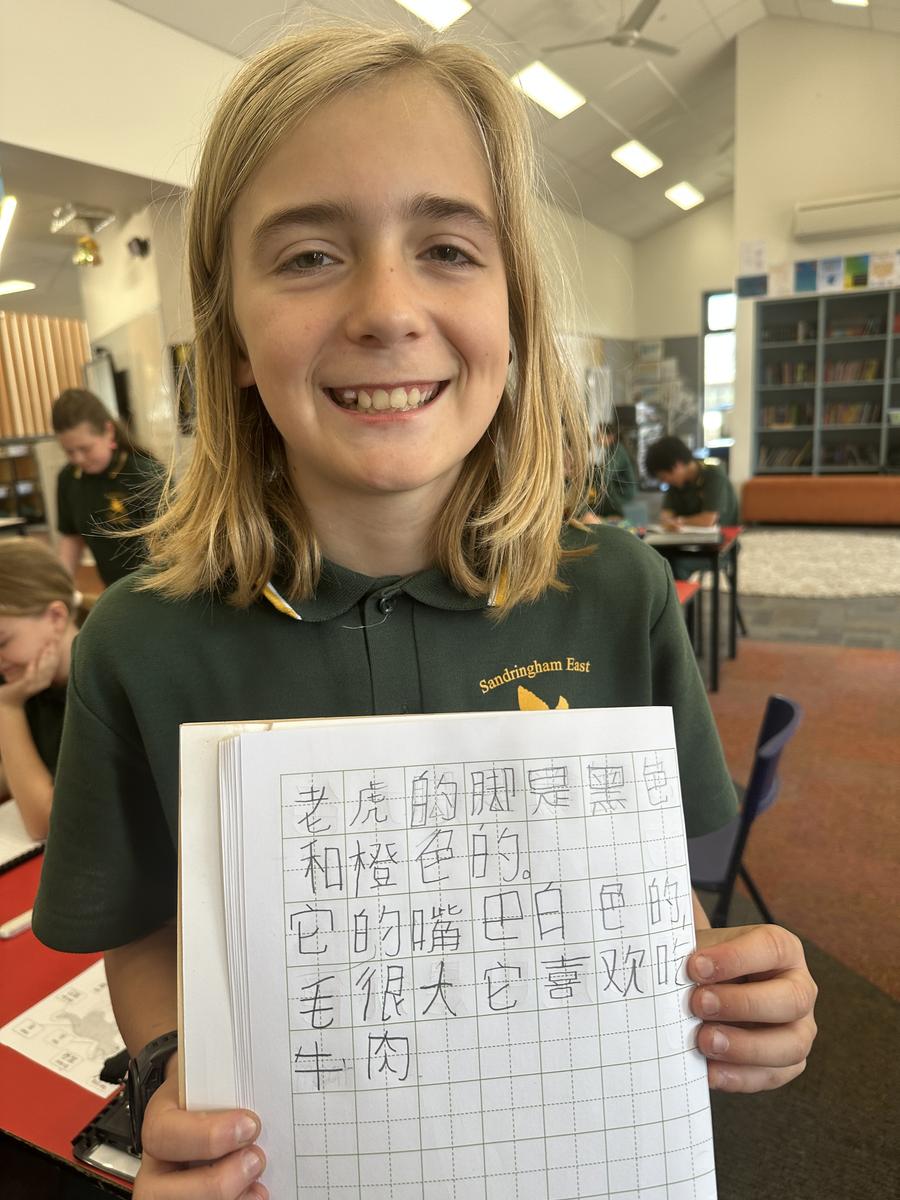 Sandringham East
老虎的脚是黑色
和橙色的。
它的嘴巴白色的,
毛很大它喜欢吃
牛肉